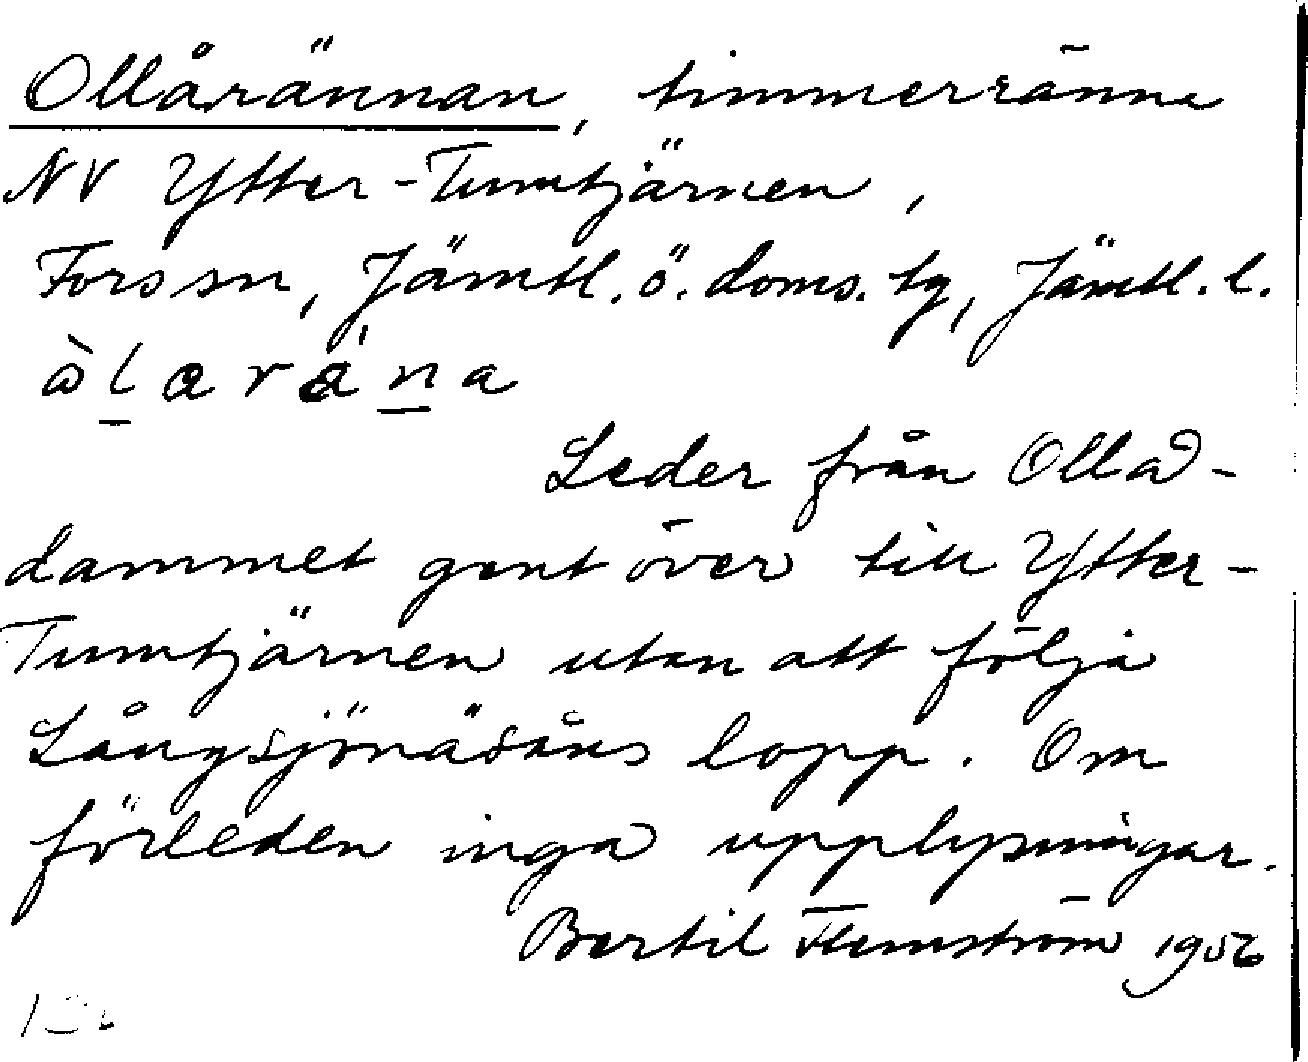 Ollårännan, timmerränna
NV Ytter-Tumtjärnen,
Fors sn, Jämtl. ö. doms. tg, Jämtl. l.
Leder från Ollå-
dammet gent över till Ytter-
Tumtjärnen utan att följa
Långsjönäsåns lopp. Om
förleden inga upplysningar.
Bertil Flemström 1956